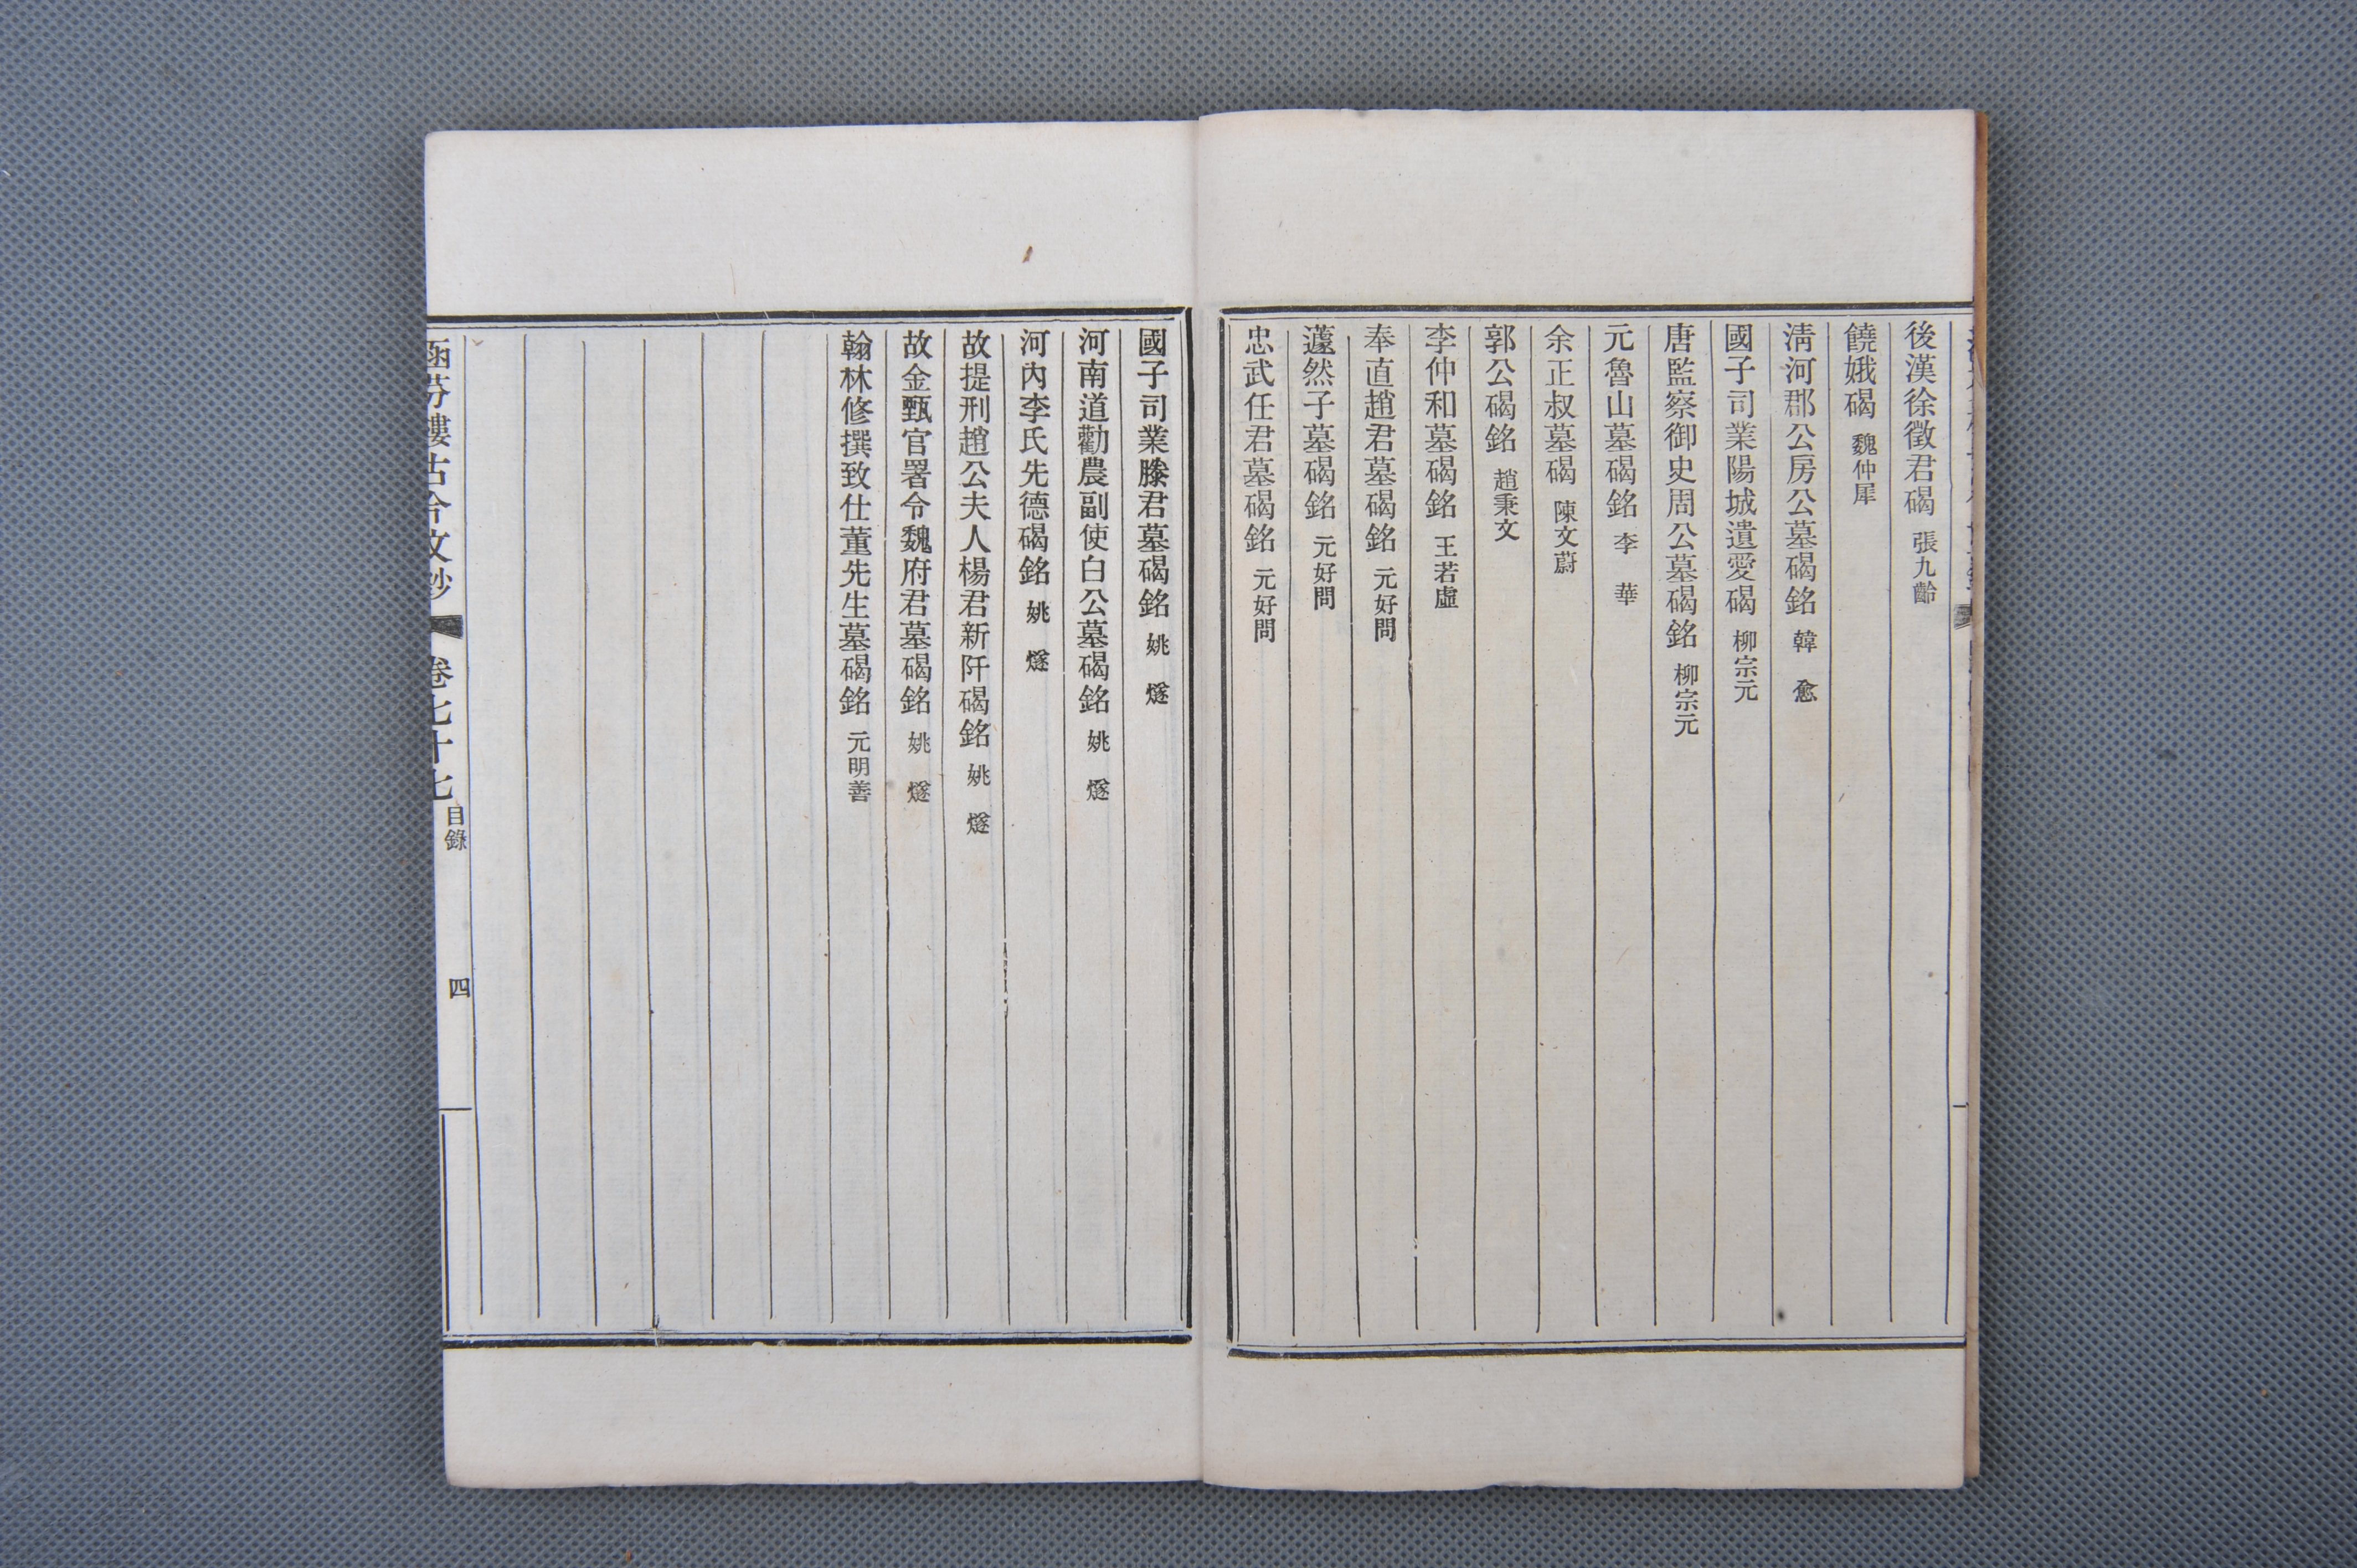 後漢徐徵君碣 張九齡
饒娥碣 魏仲犀
淸河郡公房公墓碣銘 韓愈
國子司業陽城遺愛碣 柳宗元
唐監察御史周公墓碣銘 柳宗元
元魯山墓碣銘 李華
余正叔墓碣 陳文蔚
郭公碣銘 趙秉文
李仲和墓碣銘 王若虛
奉直趙君墓碣銘 元好問
蘧然子墓碣銘 元好問
忠武任君墓碣銘 元好問
國子司業滕君墓碣銘 姚燧
河南道勸農副使白公墓碣銘 姚燧
河內李氏先德碣銘 姚燧
故提刑趙公夫人楊君新阡碣銘 姚燧
故金甄官署令魏府君墓碣銘 姚燧
翰林修撰致仕董先生墓碣銘 元明善
涵芬樓古今文鈔 卷七十七 目錄 四